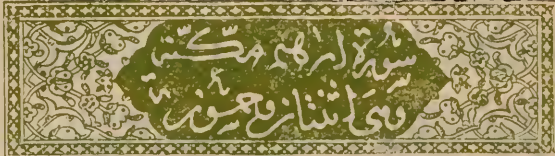 سُورَةُ إبراهيم مكّيّة
وهي اثنتان وخمسون آية